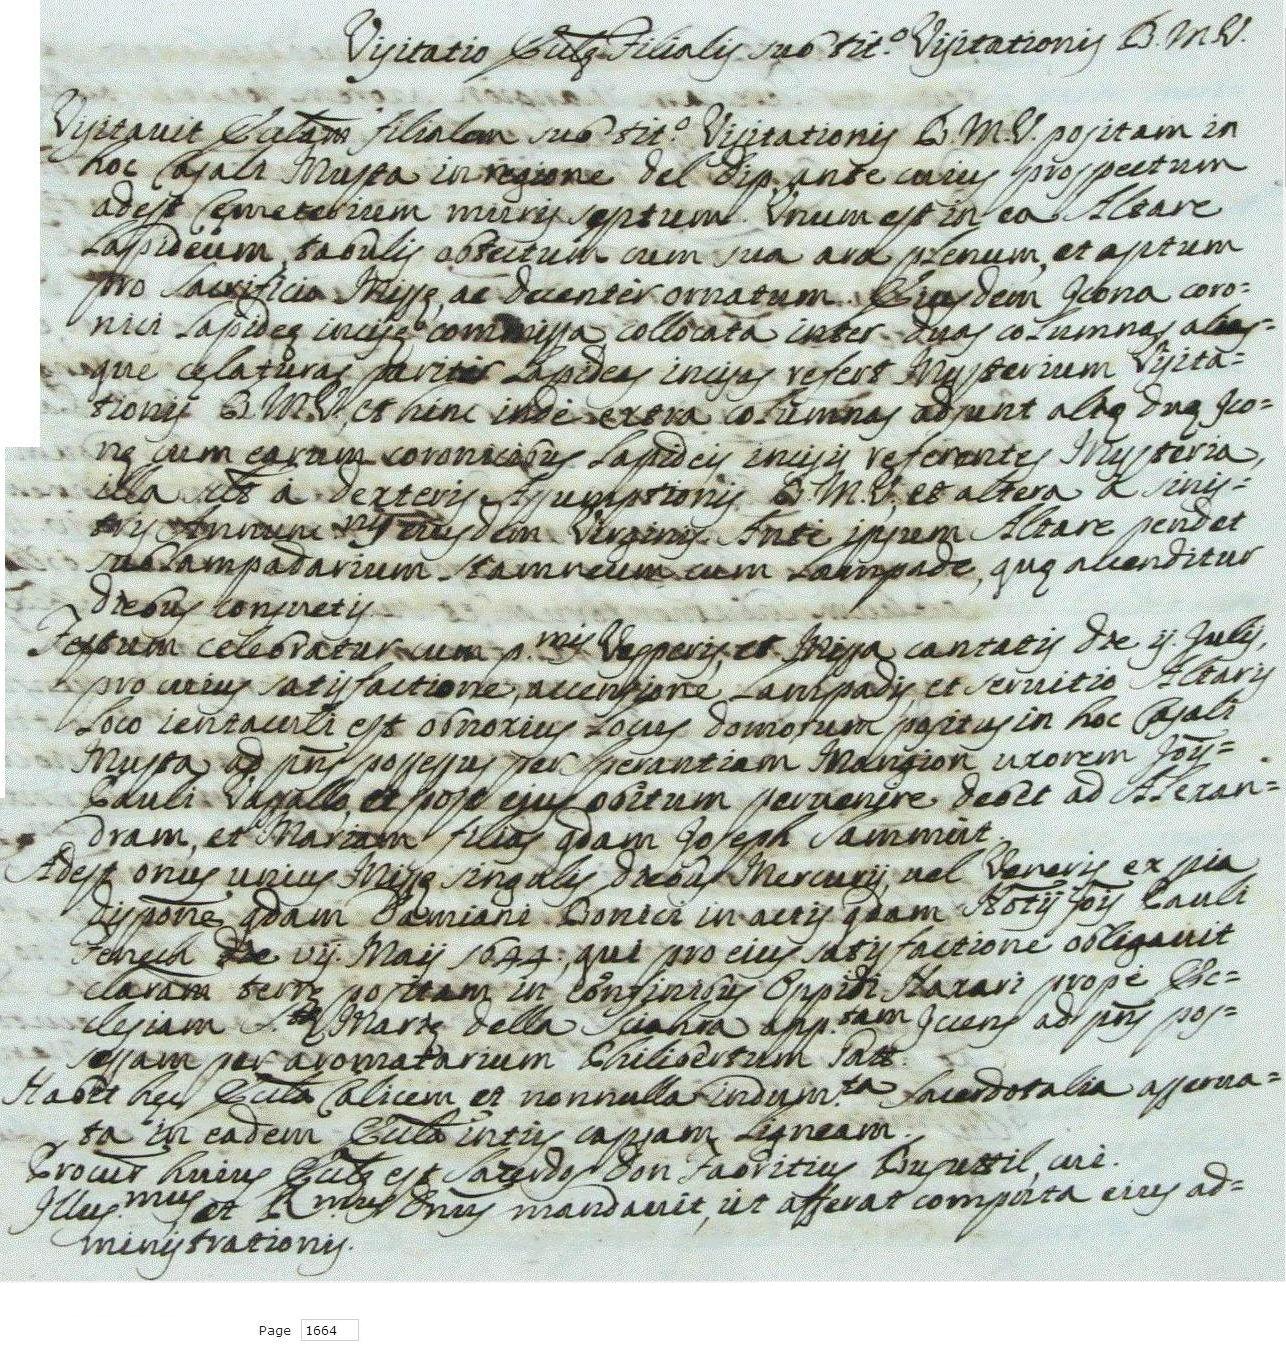 Visitatio Eccłę Filialis sub tit.º Visitationis B.M.V.
Visitavit Eccłam filialem sub tit.º Visitationis B.M.V. positam in
hoc Casali Musta in regione del Dip, ante cuius prospectum
adest Cemeterium muris septum. Unum est in ea Altare
Lapideum, tabulis obtectum cum sua ara plenum, et aptum
pro Sacrificio Missę, ac decenter ornatum. Eiusdem Icona coro=
nici Lapideę incisę commissa, collocata inter duas columnas alias=
que cęlaturas pariter Lapideas incisas refert Mysterium Visita=
tionis B.M.V., et hinc inde extra columnas adsunt alię duę Ico=
nę cum earum coronicibus Lapideis incisis referentes Mysteria,
illa a dexteris Assumptionis B.M.V., et altera a sinis=
tris Annunc.nis eiusdem Virginis. Ante ipsum Altare pendet
sublampadarium stamneum cum Lampade, quę accenditur
diebus consuetis.
Festum celebratur cum p.mis Vesperis, et Missa cantatis die ij. Julij,
pro cuius satisfactione, accensione Lampadis, et servitio Altaris
loco ientaculi est obnoxius Locus domorum positus in hoc Casali
Musta ad pñs possessus per Sperantiam Mangion uxorem Joïs=
Pauli Vassallo, et post ejus obitum pervenire debet ad Alexan=
dram, et Mariam filias qdam Joseph Sammut.
Adest onus unius Missę singulis diebus Mercurij, vel Veneris ex pia
dispõne qdam Damiani Bonici in actis qdam Notïj Joïs Pauli
Fenech die vij. Maij 1644., qui pro eius satisfactione obligavit
clavam terrę positam in confinibus Oppidi Naxari prope Ec=
clesiam S.tę Marię della Scianra app.tam Iciens ad pñs pos=
sessam per aromatarium Philibertum Satt.
Habet hęc Eccła Calicem et nonnulla indum.ta Sacerdotalia asserva=
ta in eadem Eccła intus capsam Ligneam.
Procur huius Eccłę est Sacerdos Don Fabritius Busuttil, cui
Illus.mus et R.mus Dñus mandavit, ut afferat computa eius ad=
ministrationis.
Page 1664